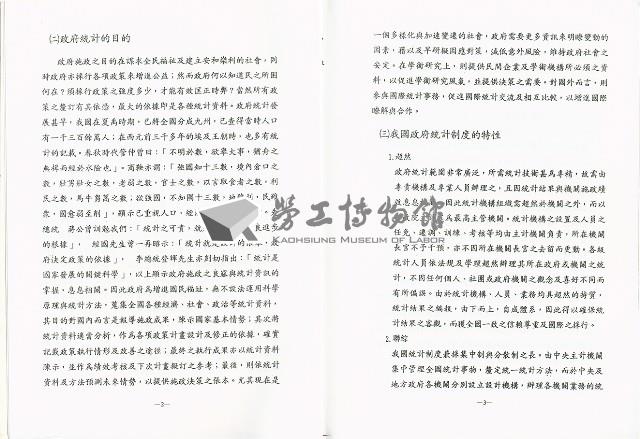 (二)政府統計的目的
政府施政之目的在謀求全民福祉及建立安和樂利的社會，則
時政府亦採行各項政策來增進公益；然而政府何以知道民之所困
何在？須採行政策之強度多少，才能有效匡正時弊？當然所有政
策之釐訂有其依憑，最大的依據即是各種統計資料。政府統計發
展甚早，我國在夏禹時期，已將全國分成九州，已查得當時人口
有一千三百餘萬人；在西元前三千多年的埃及王朝時，也多有統
計的記載。春秋時代管仲曾曰：「不明於數，欲舉大事，猶舟之
無楫而經於水險也」。商鞅亦謂：「強國知十三數，境內倉口之
數，壯男壯女之數，老弱之數，官士之數，以言取食者之數，利
民之數，馬牛芻藁之數；欲強國，不知國十三數，
眾，國愈弱至削」，顯示已重視人口、經
總統 蔣公曾訓勉我們：「統計之可貴，
的根據」， 經國先生曾一再昭示：「統計就是
府決定政策的依據」， 李總統登輝先生亦剴切指出：「統計是
國家發展的關鍵科學」，以上顯示施政之良窳與統計資訊的
掌握、息息相關。因此政府為增進國民福祉，無不設法運用科學
原理與統計方法，蒐集全國各種經濟、社會、政治等統計資料，
其目的對國內而言是報導施政成果，陳示國家基本情勢；其次將
統計資料適當分析，作為各項政策計畫設計及修正的依據，確實
記載政策執行情形及改善之途徑；最終之執行成果亦以統計資料
陳示，並作為績效考核及下次計畫擬訂之參考；最後，則依統計
資料及方法預測未來情勢，以提供施政決策之張本。尤其現在是
—3—
一個多樣化與加速變遷的社會，政府需要更多資訊來明瞭變動的
因素，藉以及早研擬因應對策，減低意外風險，維持政府社會之
安定。在學術研究上，則提供民間企業及學術機構所必須之資
料，以促進學術研究風氣，並提供決策之需要。對國外而言，則
參與國際統計事務，促進國際統計交流及相互比較，以增進國際
瞭解與合作。
(三)我國政府統計制度的特性
1.超然
政府統計範圍非常廣泛，所需統計技術甚為專精，故需由
專責機構及專業人員辦理之，且因統計結果與機關施政績
效息息
為最高主管機關。統計機構之設置及人員之
任免、遷調、訓練、考核等均由主計機關負責，所在機關
長官不予干預，亦不因所在機關長官之去留而更動。各級
統計人員依法規及學理超然辦理其所在政府或機關之統
計，不因任何個人、社團或政府機關之觀念及喜好不同而
有所偏誤。由於統計機構、人員、業務均具超然的特質，
統計結果之編報，由下而上，自成體系，因此得以確保統
計結果之客觀，而獲全國一致之信賴尊重及國際之採行。
2.聯綜
我國統計制度最採集中制與分散制之長。由中央主計機關
集中管理全國統計事物，釐定統一統計方法，而於中央及
地方政府各機關分別設立設計機構，辦理各機關業務的統
—3—
勞工博物館
KAOHSIUNG MUSEUM OF LABOR